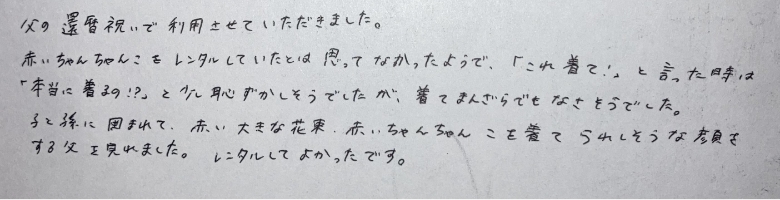 父の還暦祝いで利用させていただきました。
赤いちゃんちゃんこをレンタルしていたとは思ってなかったようで、「これ着て!」と言った時は
「本当に着るの!?」と少し恥ずかしそうでしたが、着てまんざらでもなさそうでした。
子と孫に囲まれて、赤い大きな花束、赤いちゃんちゃんこを着てうれしそうな顔を
する父を見れました。レンタルしてよかったです。